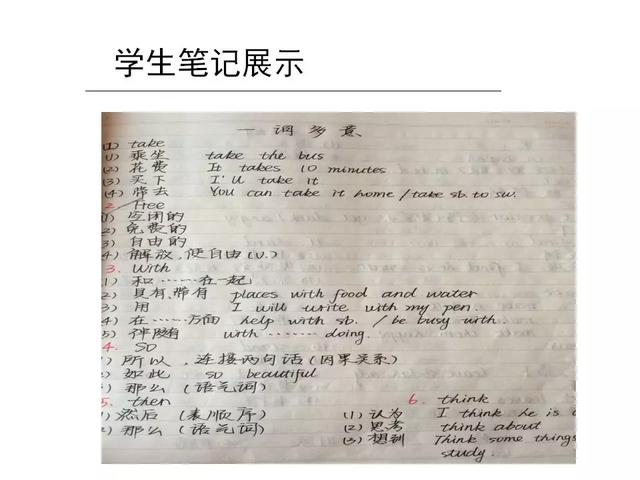 学生笔记展示
一词多意
(1) take
(1) 乘坐 take the bus
(2) 花费 It takes 10 minutes
(3) 买下 I'll take it
(4) 带去 You can take it home / take sb. to sw.
2. free
(1) 空闲的
2) 免费的
3) 自由的
4) 解放,使自由(v.)
3. With
1) 和……在一起
2) 具有,带有 places with food and water
3) 用 I will write with my pen
4) 在……方面 help with sb. / be busy with
5) 伴随着 with ……… doing.
4. SO
1) 所以,连接两句话(因果关系)
2) 如此 so beautiful
3) 那么(语气词)
5. then
1) 然后 (表顺序)
2) 那么 (语气词)
6. think
(1) 认为 I think he is
(2) 思考 think about
(3) 想到 Think some things
study.